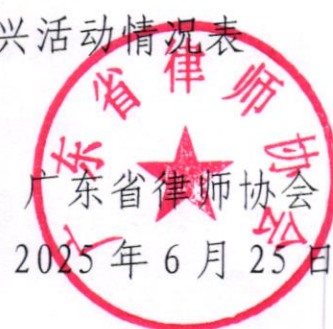 兴活动情况表
广东省律师协会
广东省律师协会
2025年6月25日